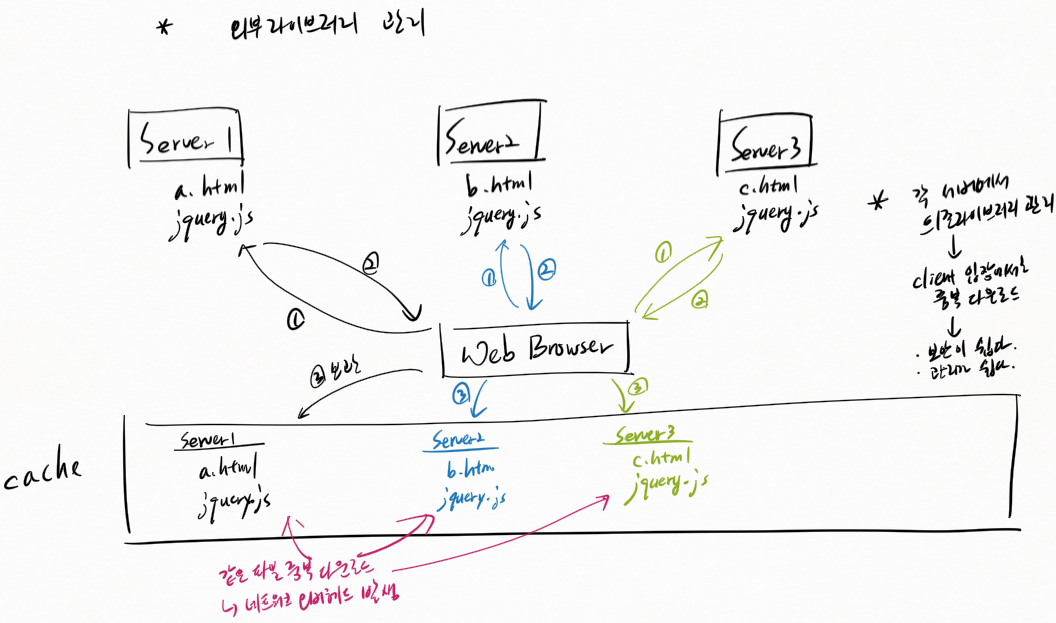 * 외부라이브러리 관리
Server 1
a.html
jquery.js
Server2
b.html
jquery.js
Server3
c.html
jquery.js
* 각 서버에서
의존라이브러리 관리
↓
client 입장에서는
중복 다운로드
↓
· 보안이 쉽다.
· 관리가 쉽다.
①
②
①
②
①
②
Web Browser
③ 보관
③
③
cache
Server1
a.html
jquery.js
Server2
b.htm
jquery.js
Server3
c.html
jquery.js
같은 파일 중복 다운로드
↳ 네트워크 오버헤드 발생